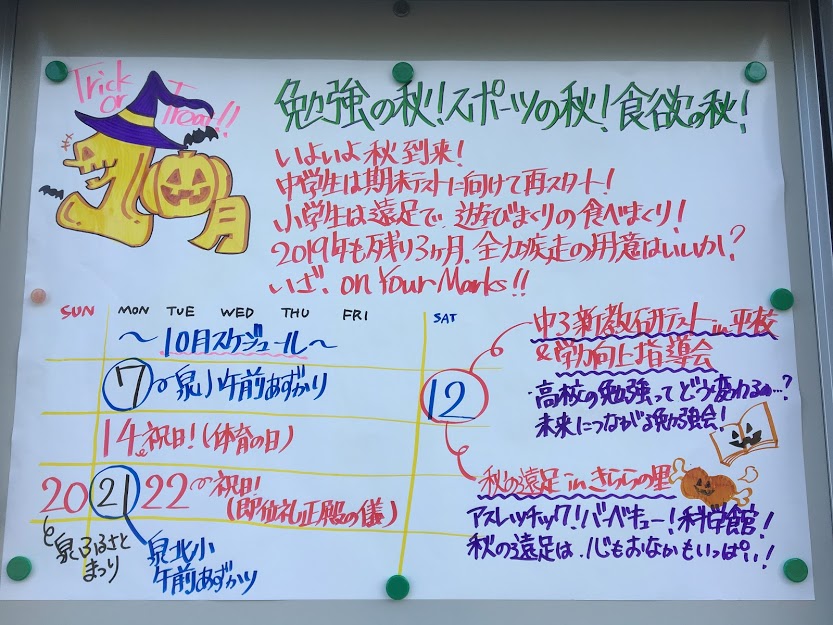 Trick
or
Treat!!
10月
勉強の秋!スポーツの秋!食欲の秋!
いよいよ秋到来!
中学生は期末テストに向けて再スタート!
小学生は遠足で、遊びまくりの食べまくり!
2019年も残り3ヶ月、全力疾走の用意はいいかい?
いざ、on Your Marks!!
SUN MON TUE WED THU FRI SAT
～10月スケジュール～
7 泉小午前あずかり
14 祝日!(体育の日)
20 21 22 祝日!
(即位礼正殿の儀)
泉ふるさと
まつり
泉北小
午前あずかり
12
中3新教研テスト in 平校
&学力向上指導会
高校の勉強ってどう変わるの…?
未来につながる勉強会!
秋の遠足 in きららの里
アスレッチック!バーベキュー!科学館!
秋の遠足は、心もおなかもいっぱい!